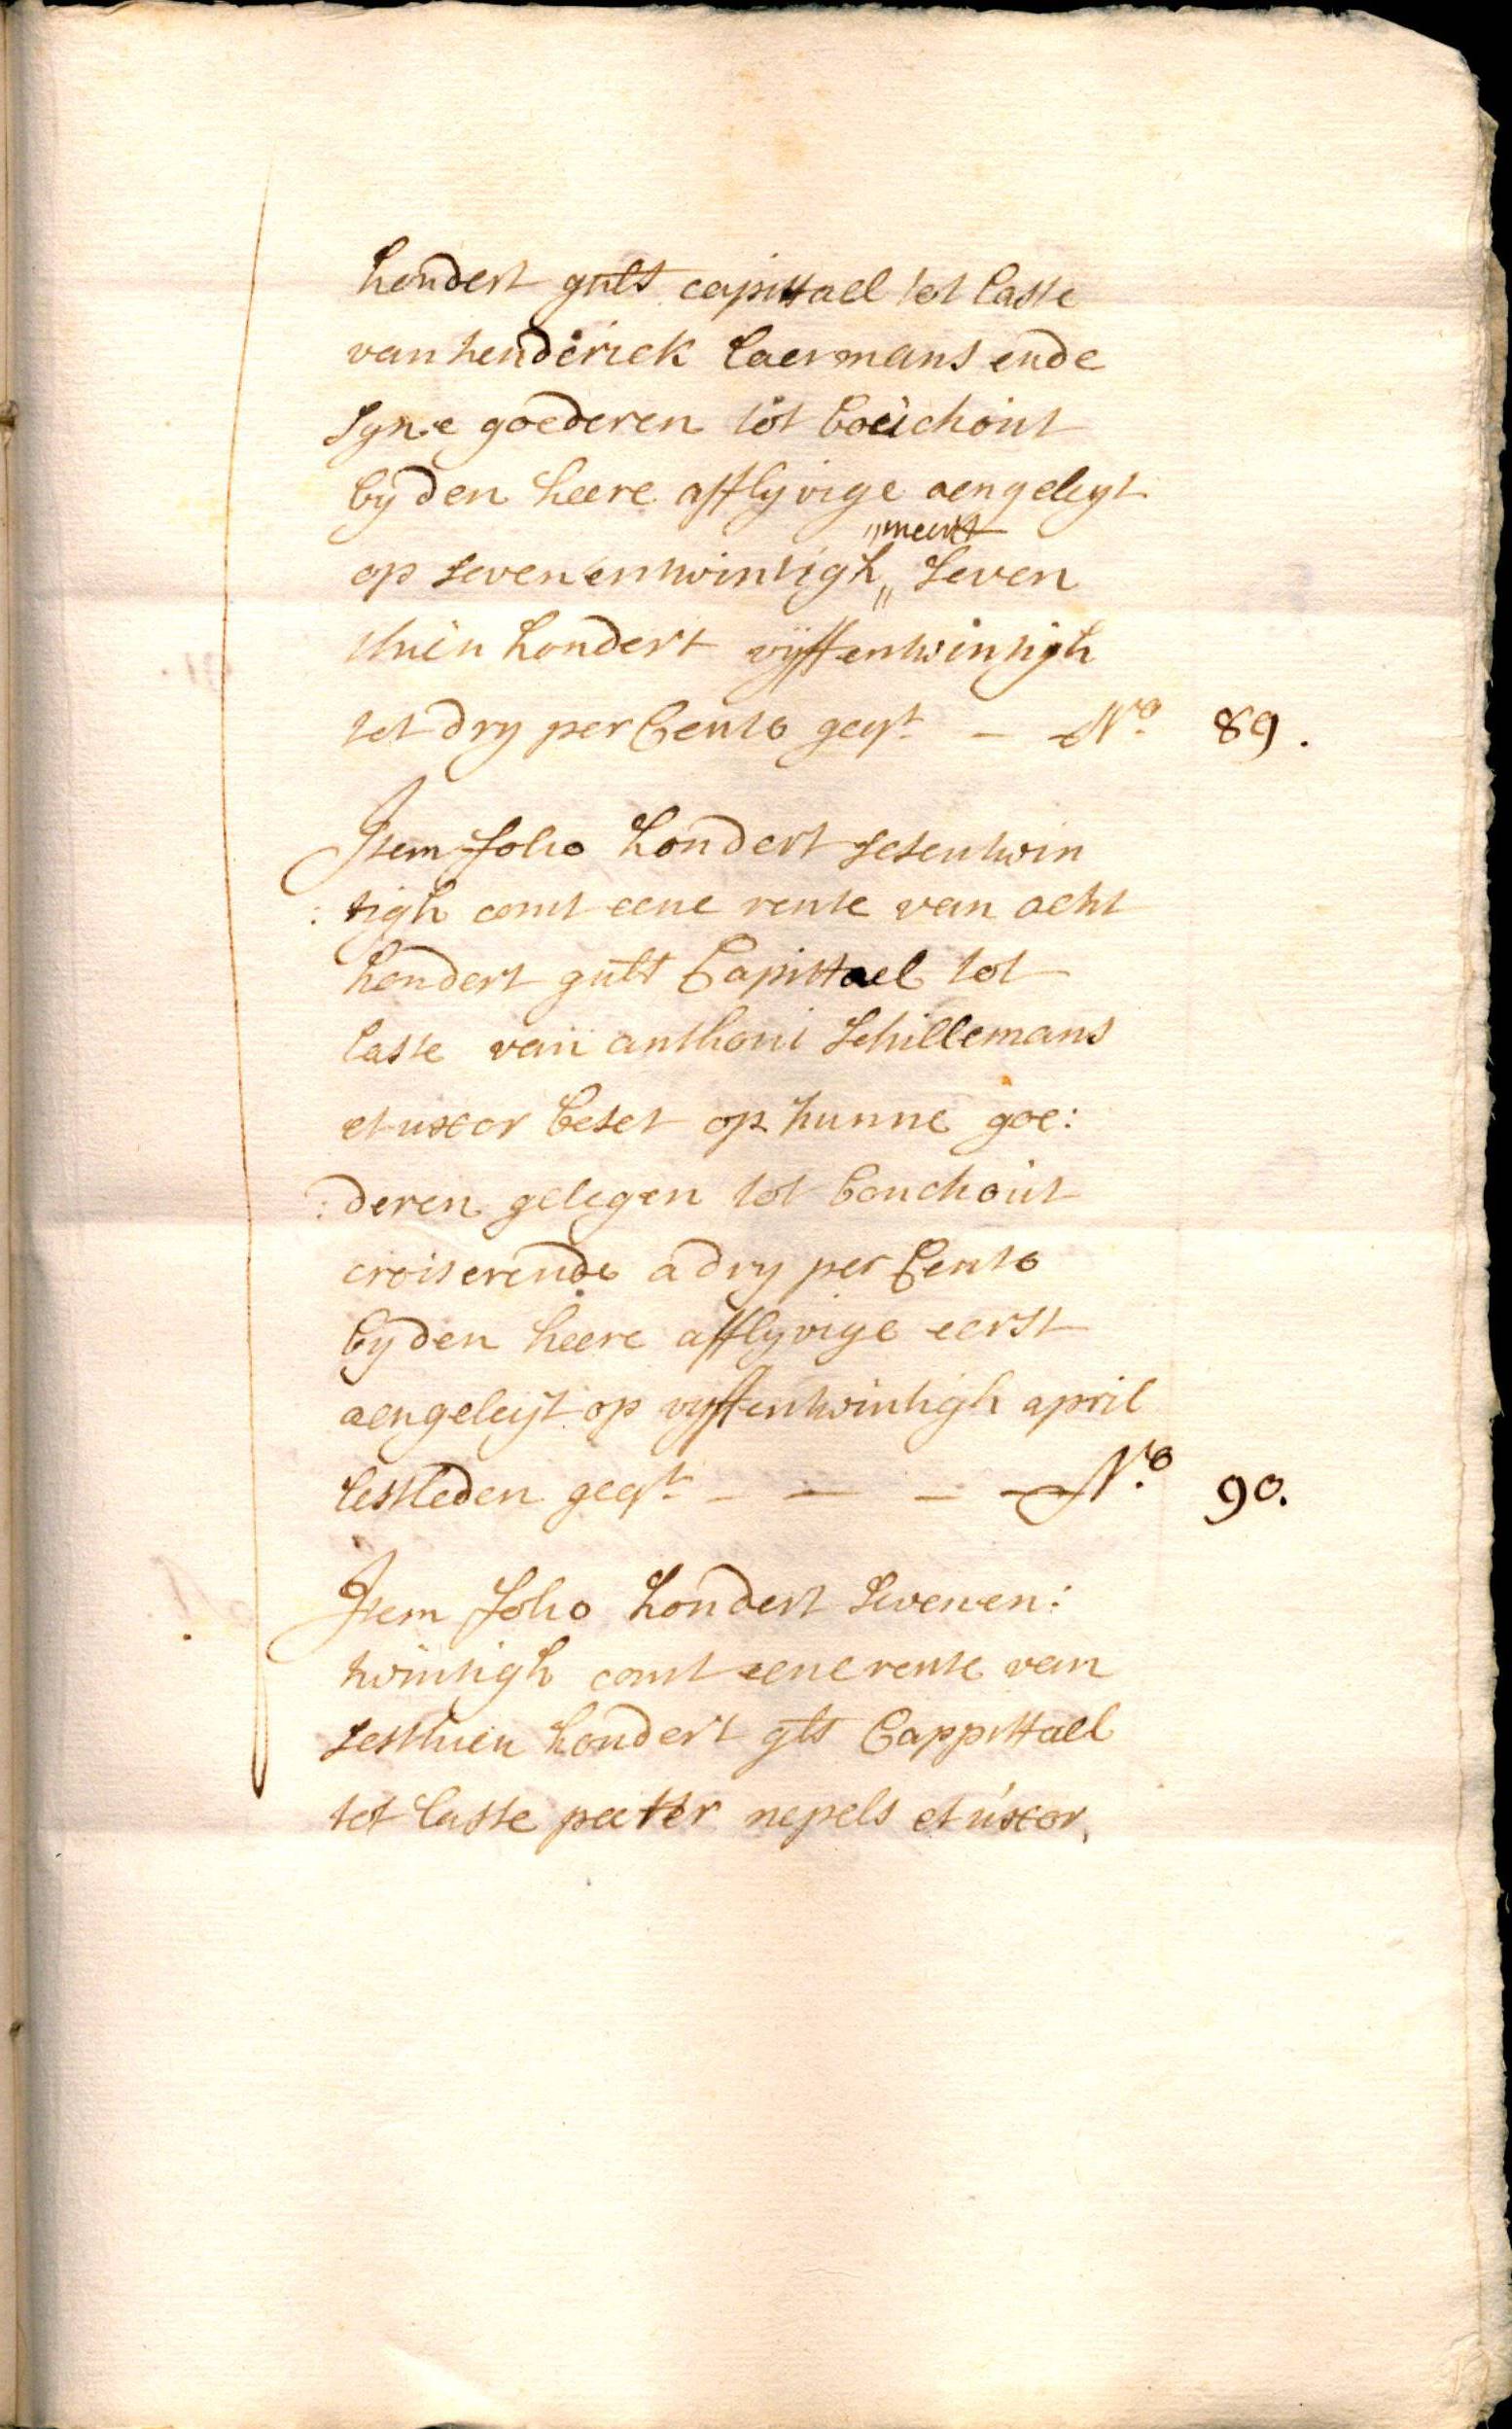 hondert gúls capittael tot laste
van henderick Caermans ende
syne goederen tot boúchoút
by den heere afflyvige aengeleyt
„meert
op sevenentwintigh „ seven
thien hondert vyffentwintigh
tot dry per Cento geqt – No 89.
Item folio hondert sesentwin
: tigh comt eene rente van acht
hondert gúls Capittael tot
laste van anthoni Schillemans
et uxor beset op hunne goe:
: deren gelegen tot bouchoút
croiserende a dry per Cento
by den heere afflyvige eerst
aengeleyt op vyffentwintigh april
lestleden geqt – – – No 90.
Item folio hondert seven en:
twintigh comt eene rente van
sesthien hondert gls Cappittael
tot laste peeter nepels et uxor,